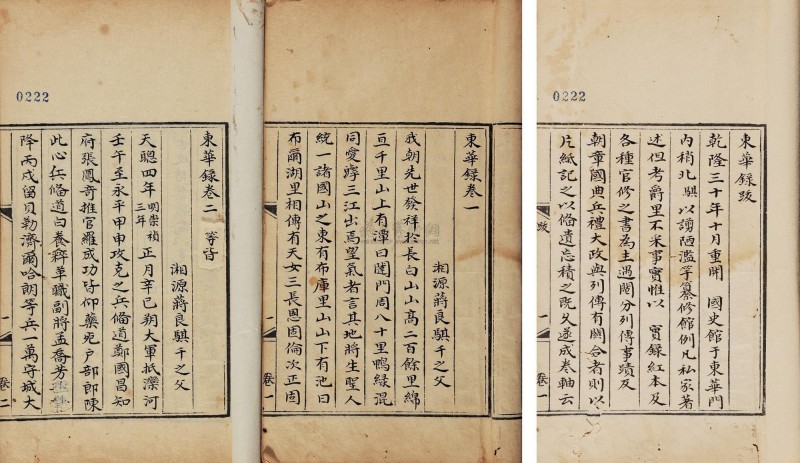 東華錄跋
乾隆三十年十月重開 國史館于東華門
內稍北騏以謭陋濫竽纂修館例凡私家著
述但考爵里不采事實惟以 實錄紅本及
各種官修之書為主遇閱分列傳事蹟及
朝章國典兵禮大政與列傳有關合者則以
片紙記之以備遺忘積之既久遂成卷軸云
跋
一
卷一
0222
東華錄卷一
湘源蔣良騏千之父
我朝先世發祥於長白山山高二百餘里綿
亘千里山上有潭曰闥門周八十里鴨綠混
同愛滹三江出焉望氣者言其地將生聖人
統一諸國山之東有布庫里山山下有池曰
布爾湖里相傳有天女三長恩固倫次正固
一
卷一
東華錄卷二
湘源蔣良騏千之父
天聰四年明崇禎三年正月辛巳朔大軍抵灤河
壬午至永平甲申攻克之兵備道鄭國昌知
府張鳳奇推官羅成功皆仰藥死戶部郎陳
此心兵備道白養粹革職副將孟喬芳
降丙戌留貝勒濟爾哈朗等兵一萬守城大
一
卷二
0222